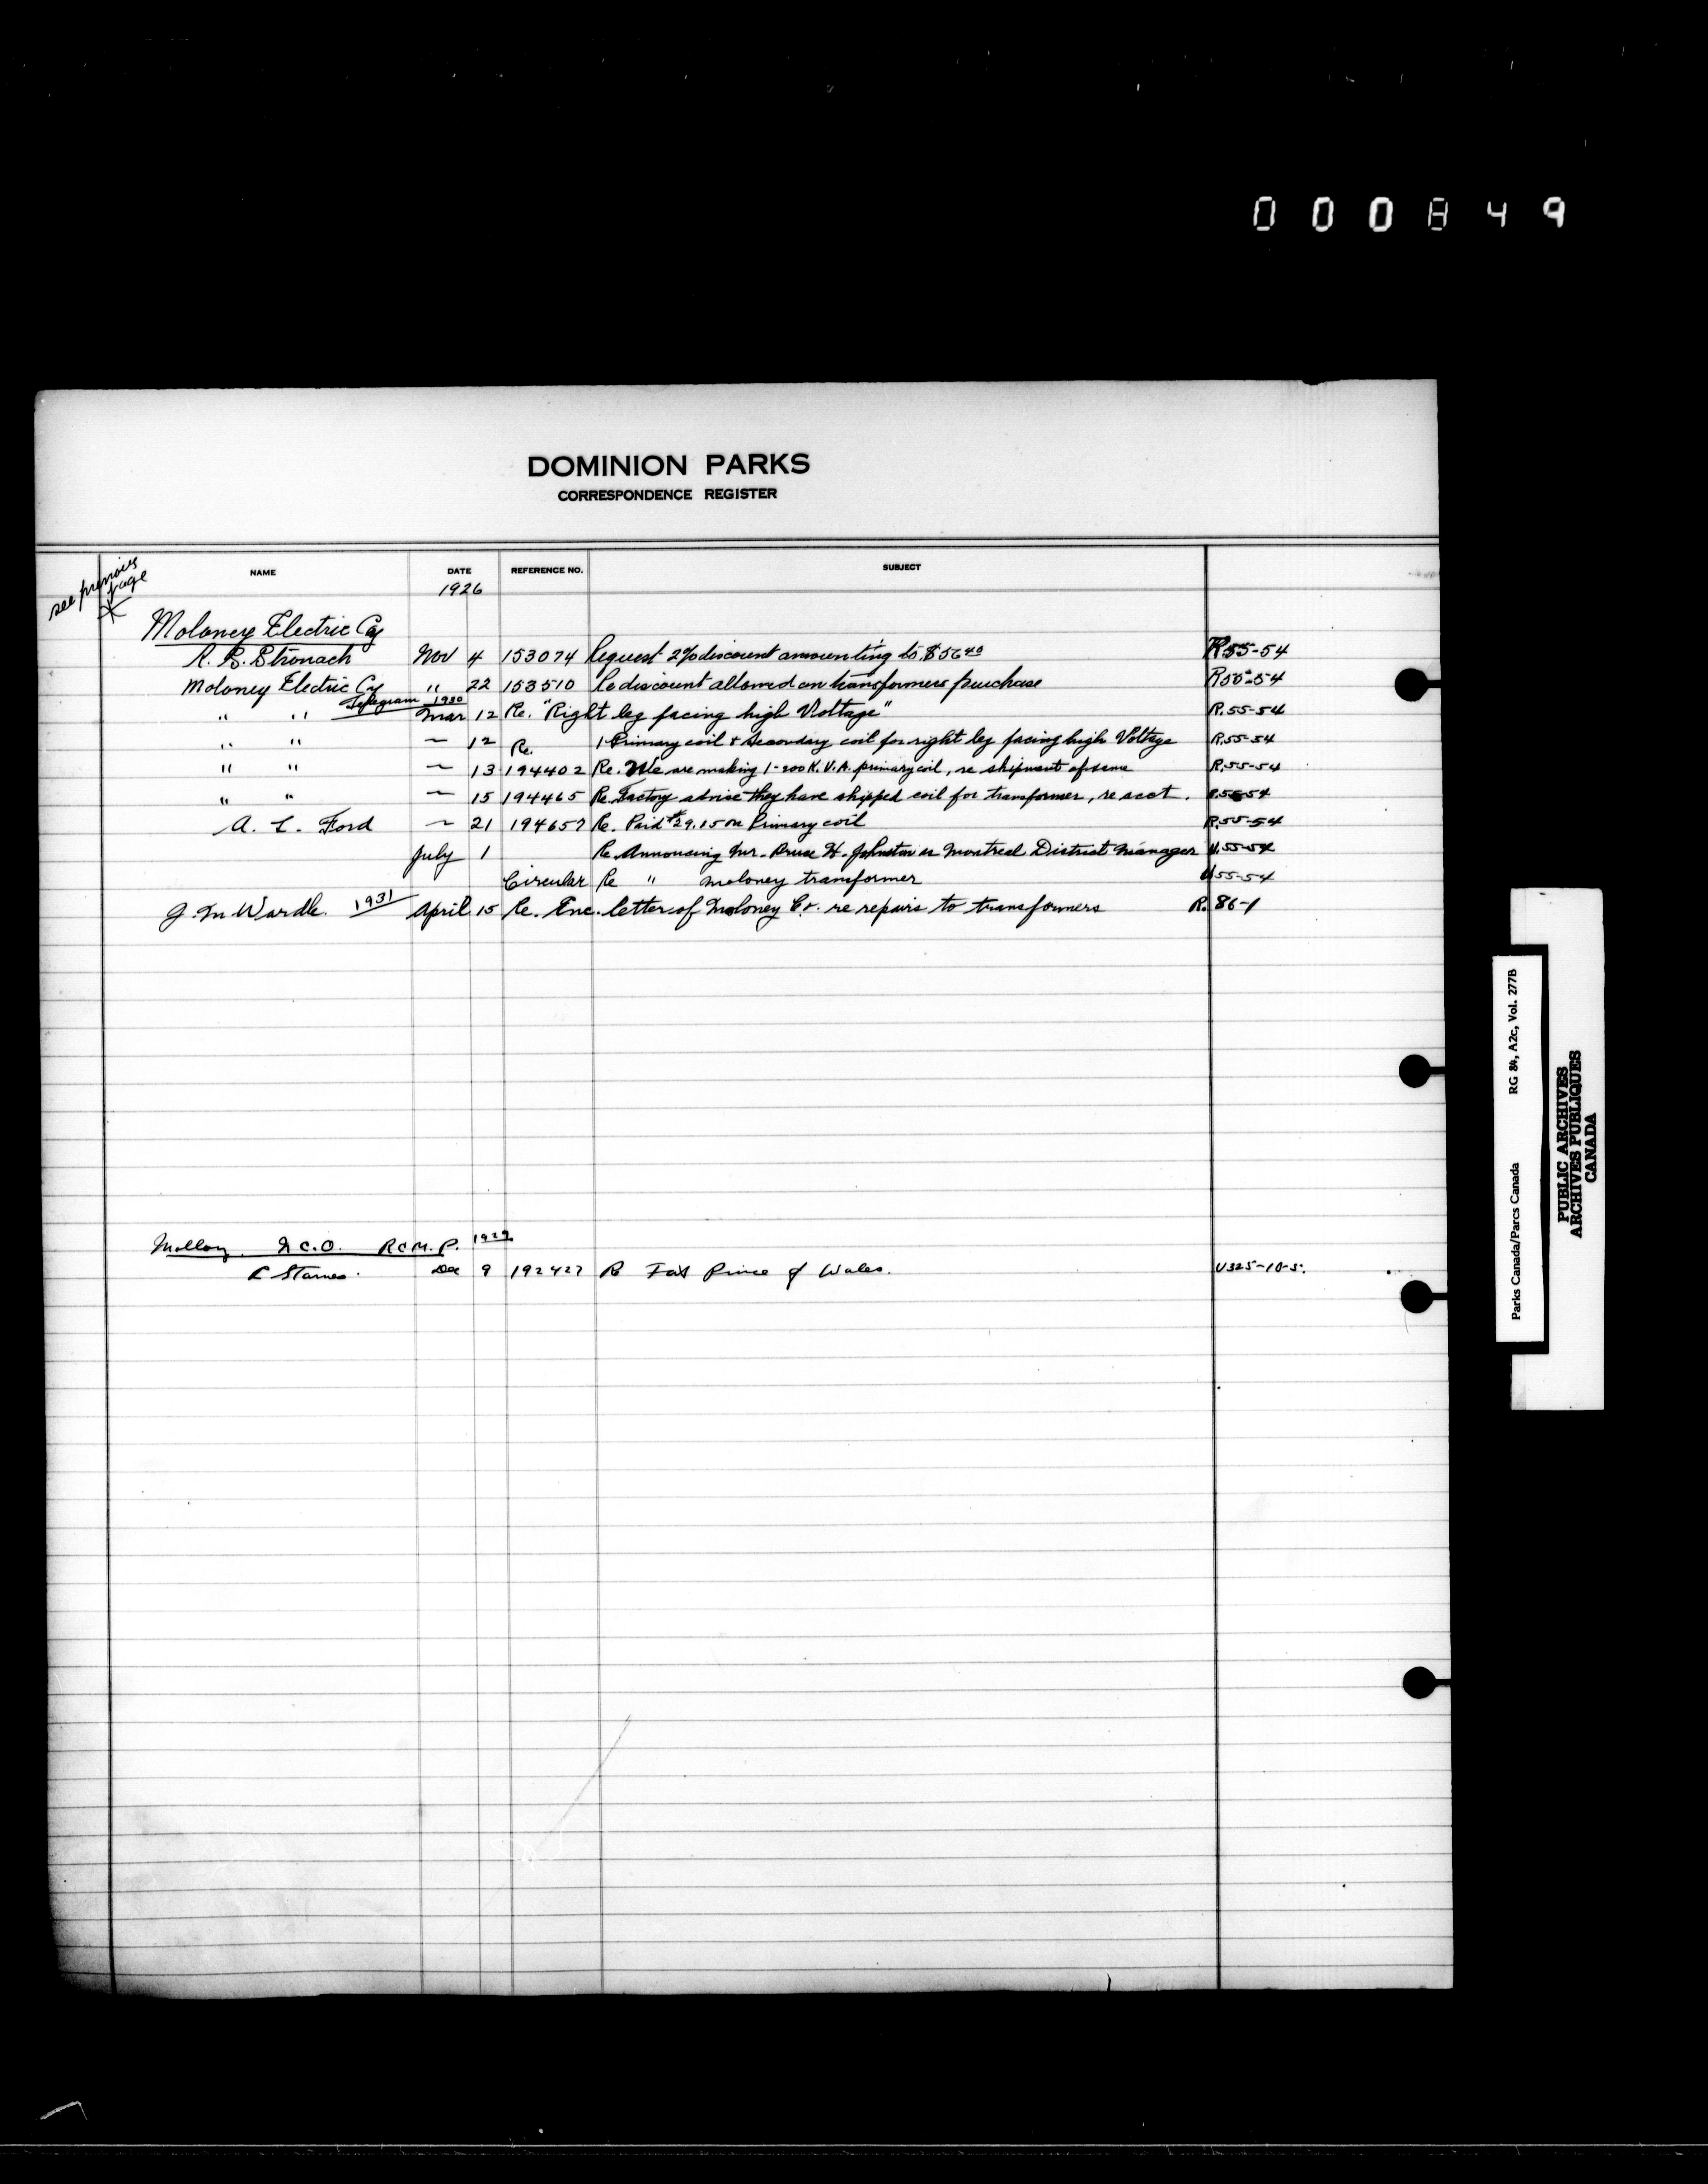 000849
DOMINION PARKS
CORRESPONDENCE REGISTER
see previous page
NAME DATE REFERENCE NO. SUBJECT
1926
Moloney Electric Coy
R. B. Stronach Nov 4 153074 Request 2% discount amounting to $56 40 R55-54
Moloney Electric Cy " 22 153510 Re discount allowed on transformers purchase R55-54
Telegram 1930
" " Mar 12 Re. "Right leg facing high Voltage" R.55-54
" " ~ 12 Re. 1 Primary coil & Secondary coil for right leg facing high Voltage R.55-54
" " ~ 13 194402 Re. We are making 1-200 K.V.A. primary coil, re shipment of same R.55-54
" " ~ 15 194465 Re. Factory advise they have shipped coil for transformer, re acct. R.55-54
A. L. Ford ~ 21 194657 Re. Paid $29.15 on Primary coil R.55-54
July 1 Re. Announcing Mr. Bruce H. Johnston as Montreal District Manager U.55-54
Circular Re " Moloney transformer U55-54
J. M. Wardle. 1931 April 15 Re. Enc. letter of Moloney Co. re repairs to transformers R. 86-1
Molloy. N C.O. R.C.M.P. 1929
C Starnes. Dec 9 192427 Re Fort Prince of Wales. U325-10-5.
Parks Canada/Parcs Canada RG 84, A2c, Vol. 2778
PUBLIC ARCHIVES
ARCHIVES PUBLIQUES
CANADA